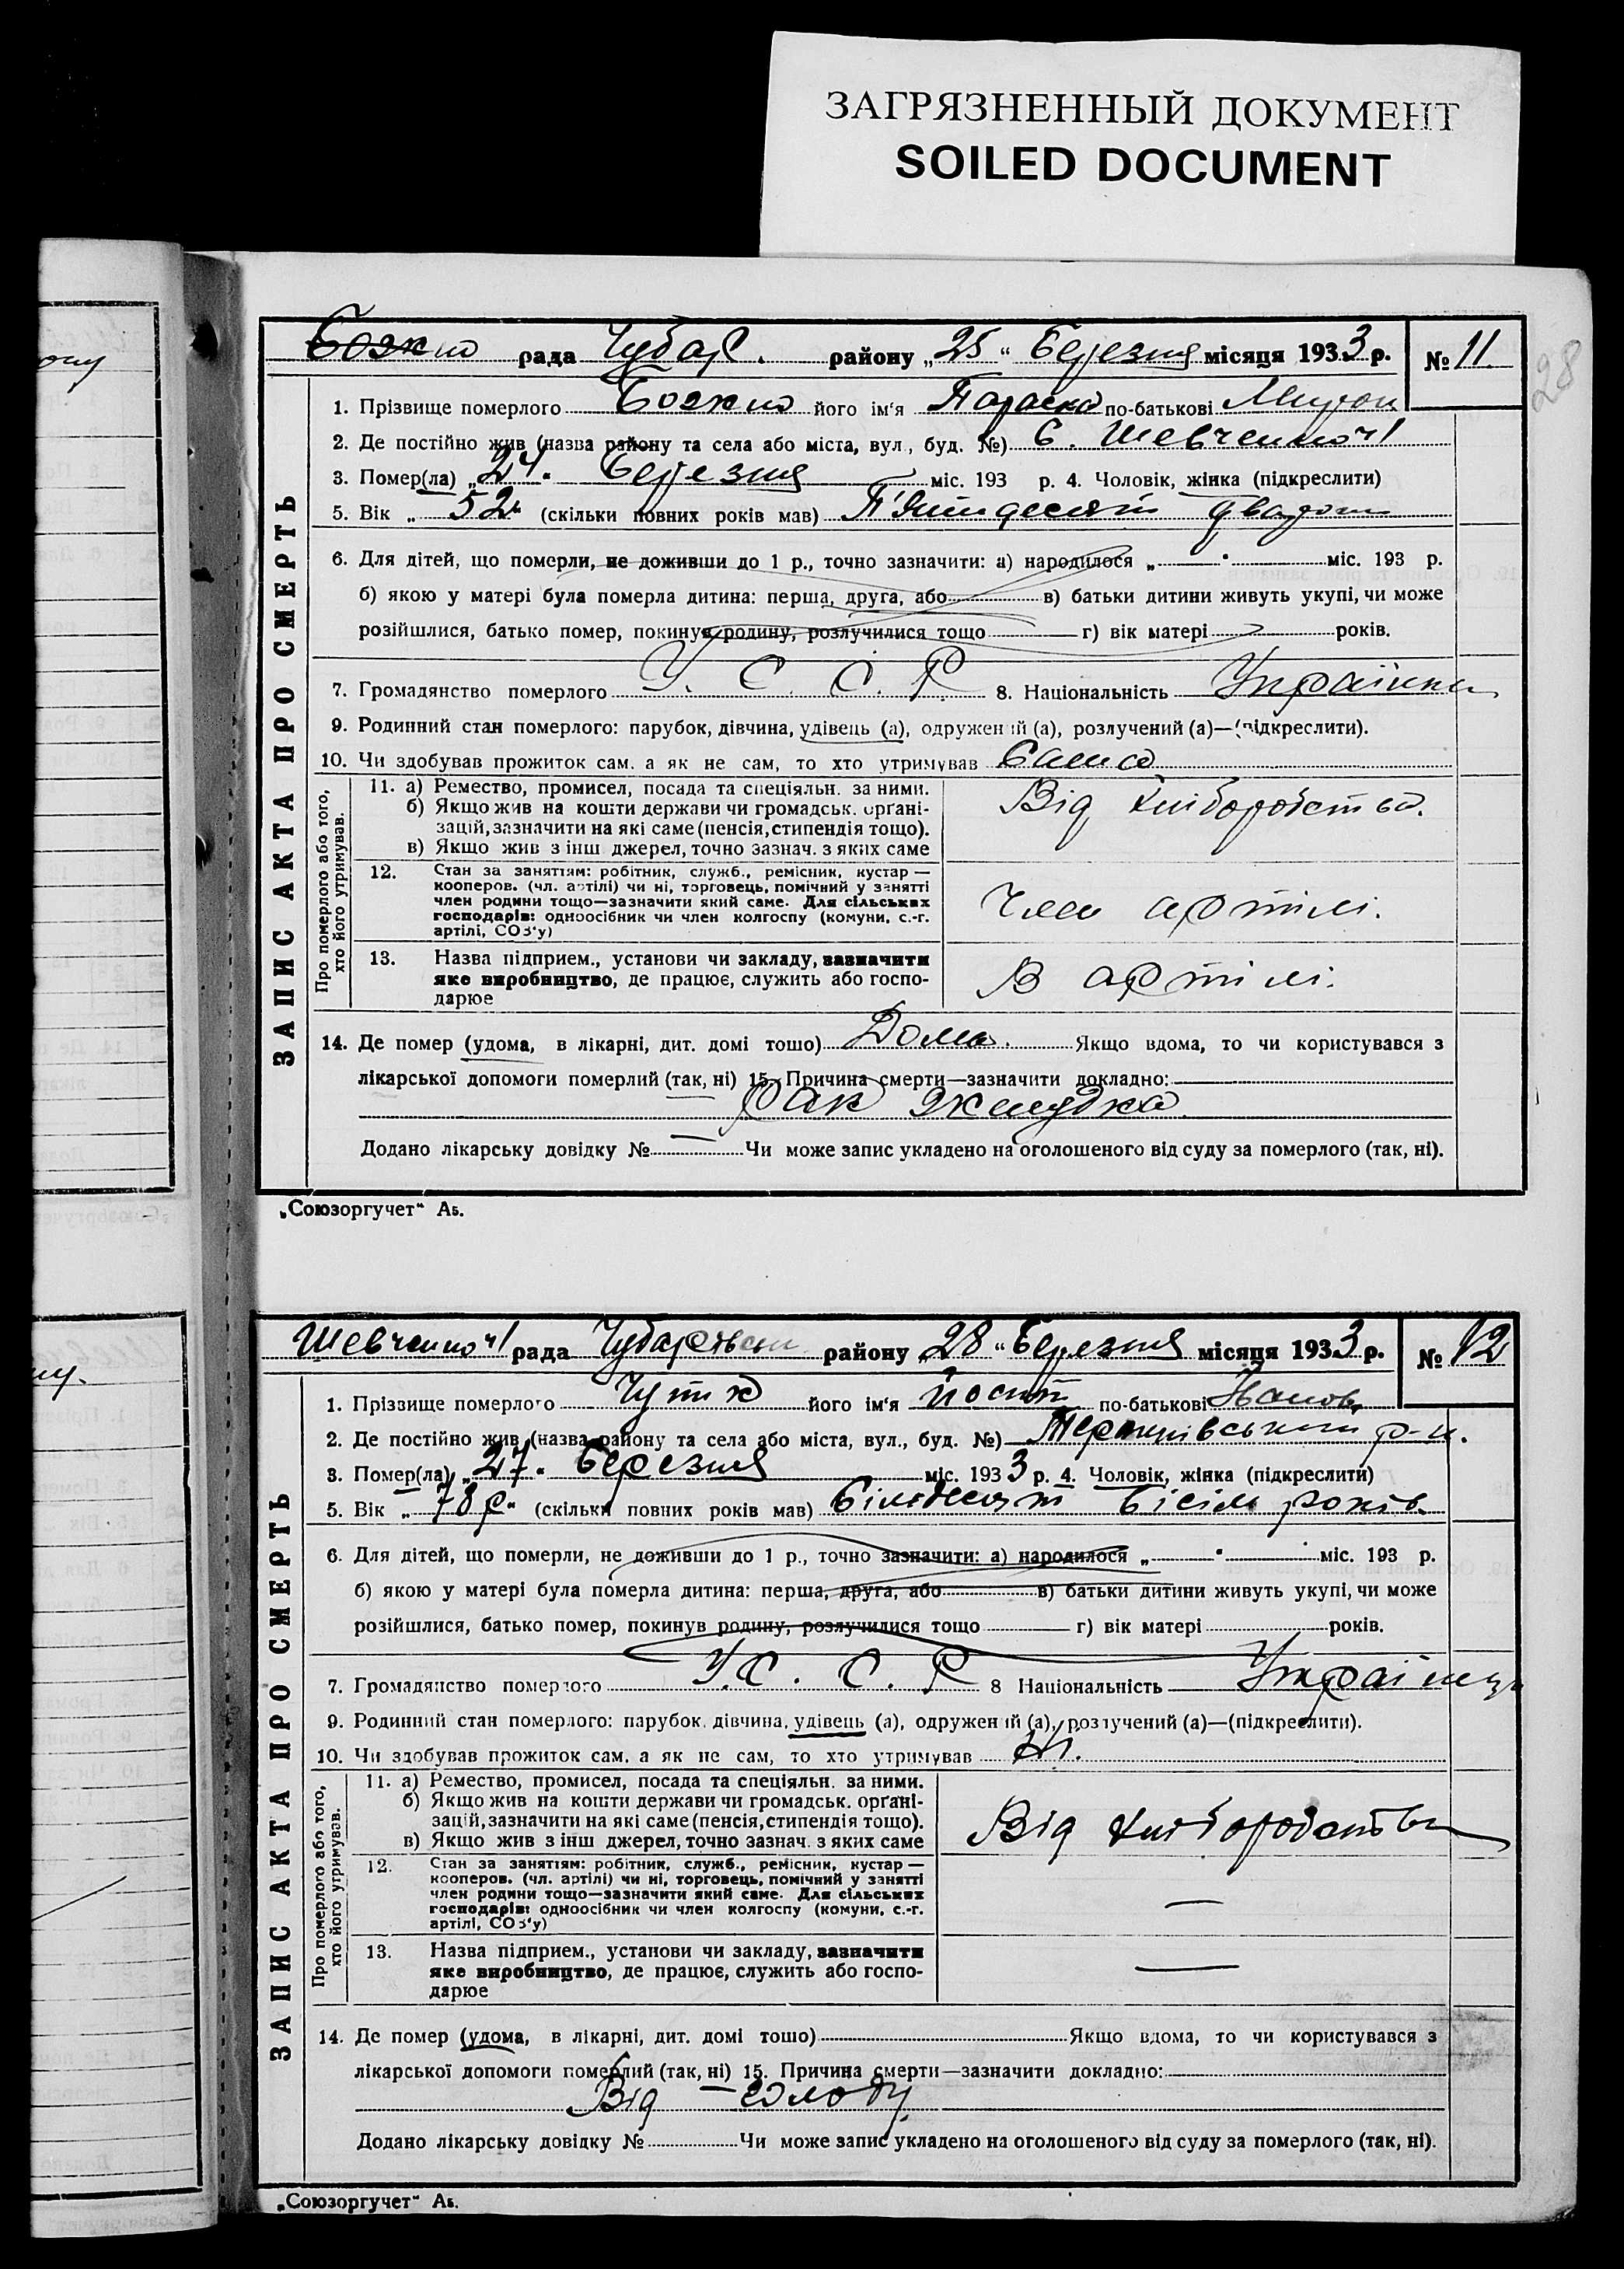 ЗАГРЯЗНЕННЫЙ ДОКУМЕНТ
SOILED DOCUMENT
28
рада Чубар. району „25“ Березня місяця 1933 р. № 11.
ЗАПИС АКТА ПРО СМЕРТЬ
1. Прізвище померлого Божко його ім‘я Параска по-батькові Мирон
2. Де постійно жив (назва району та села або міста, вул., буд. №) С. Шевченко
3. Помер(ла) „24“ Березня міс. 193 р. 4. Чоловік, жінка (підкреслити)
5. Вік „52“ (скільки повних років мав) П'ятдесят два роки
6. Для дітей, що померли, не доживши до 1 р., точно зазначити: а) народилося „ “ міс. 193 р.
б) якою у матері була померла дитина: перша, друга, або в) батьки дитини живуть укупі, чи може
розійшлися, батько помер, покинув родину, розлучилися тощо г) вік матері років.
7. Громадянство померлого У. С. С. Р 8. Національність Українка
9. Родинний стан померлого: парубок, дівчина, удівець (а), одружений (а), розлучений (а)—(підкреслити).
10. Чи здобував прожиток сам, а як не сам, то хто утримував Сама
Про померлого або того, хто його утримував.
11. а) Ремество, промисел, посада та спеціяльн. за ними.
б) Якщо жив на кошти держави чи громадськ. орґані-
зацій, зазначити на які саме (пенсія, стипендія тощо).
в) Якщо жив з інш джерел, точно зазнач. з яких саме
Від хліборобства.
12. Стан за заняттям: робітник, служб., ремісник, кустар —
кооперов. (чл. артілі) чи ні, торговець, помічний у занятті
член родини тощо—зазначити який саме. Для сільських
господарів: одноосібник чи член колгоспу (комуни, с.-г.
артілі, СОЗ‘у)
Член артілі.
13. Назва підприєм., установи чи закладу, зазначити
яке виробництво, де працює, служить або госпо-
дарює
В артілі.
14. Де помер (удома, в лікарні, дит. домі тошо) Дома. Якщо вдома, то чи користувався з
лікарської допомоги померлий (так, ні) 15. Причина смерти—зазначити докладно:
Рак желудка
Додано лікарську довідку № — Чи може запис укладено на оголошеного від суду за померлого (так, ні).
„Союзоргучет“ Аь.
рада Чубарівськ району „28“ Березня місяця 1933 р. № 12
ЗАПИС АКТА ПРО СМЕРТЬ
1. Прізвище померлого його ім‘я Йосип по-батькові Іванов
2. Де постійно жив (назва району та села або міста, вул., буд. №) р-н.
3. Помер(ла) „27“ Березня міс. 1933 р. 4. Чоловік, жінка (підкреслити)
5. Вік „78 р“ (скільки повних років мав) Сімдесят вісім років
6. Для дітей, що померли, не доживши до 1 р., точно зазначити: а) народилося „ “ міс. 193 р.
б) якою у матері була померла дитина: перша, друга, або в) батьки дитини живуть укупі, чи може
розійшлися, батько помер, покинув родину, розлучилися тощо г) вік матері років.
7. Громадянство померлого У. С. С. Р 8 Національність Українець
9. Родинний стан померлого: парубок, дівчина, удівець (а), одружений (а), розлучений (а)—(підкреслити).
10. Чи здобував прожиток сам, а як не сам, то хто утримував
Про померлого або того, хто його утримував.
11. а) Ремество, промисел, посада та спеціяльн. за ними.
б) Якщо жив на кошти держави чи громадськ. орґані-
зацій, зазначити на які саме (пенсія, стипендія тощо).
в) Якщо жив з інш джерел, точно зазнач. з яких саме
Від хліборобства
12. Стан за заняттям: робітник, служб., ремісник, кустар —
кооперов. (чл. артілі) чи ні, торговець, помічний у занятті
член родини тощо—зазначити який саме. Для сільських
господарів: одноосібник чи член колгоспу (комуни, с.-г.
артілі, СОЗ‘у)
—
13. Назва підприєм., установи чи закладу, зазначити
яке виробництво, де працює, служить або госпо-
дарює
—
14. Де помер (удома, в лікарні, дит. домі тошо) Якщо вдома, то чи користувався з
лікарської допомоги померлий (так, ні) 15. Причина смерти—зазначити докладно:
Від голоду
Додано лікарську довідку № Чи може запис укладено на оголошеного від суду за померлого (так, ні).
„Союзоргучет“ Аь.